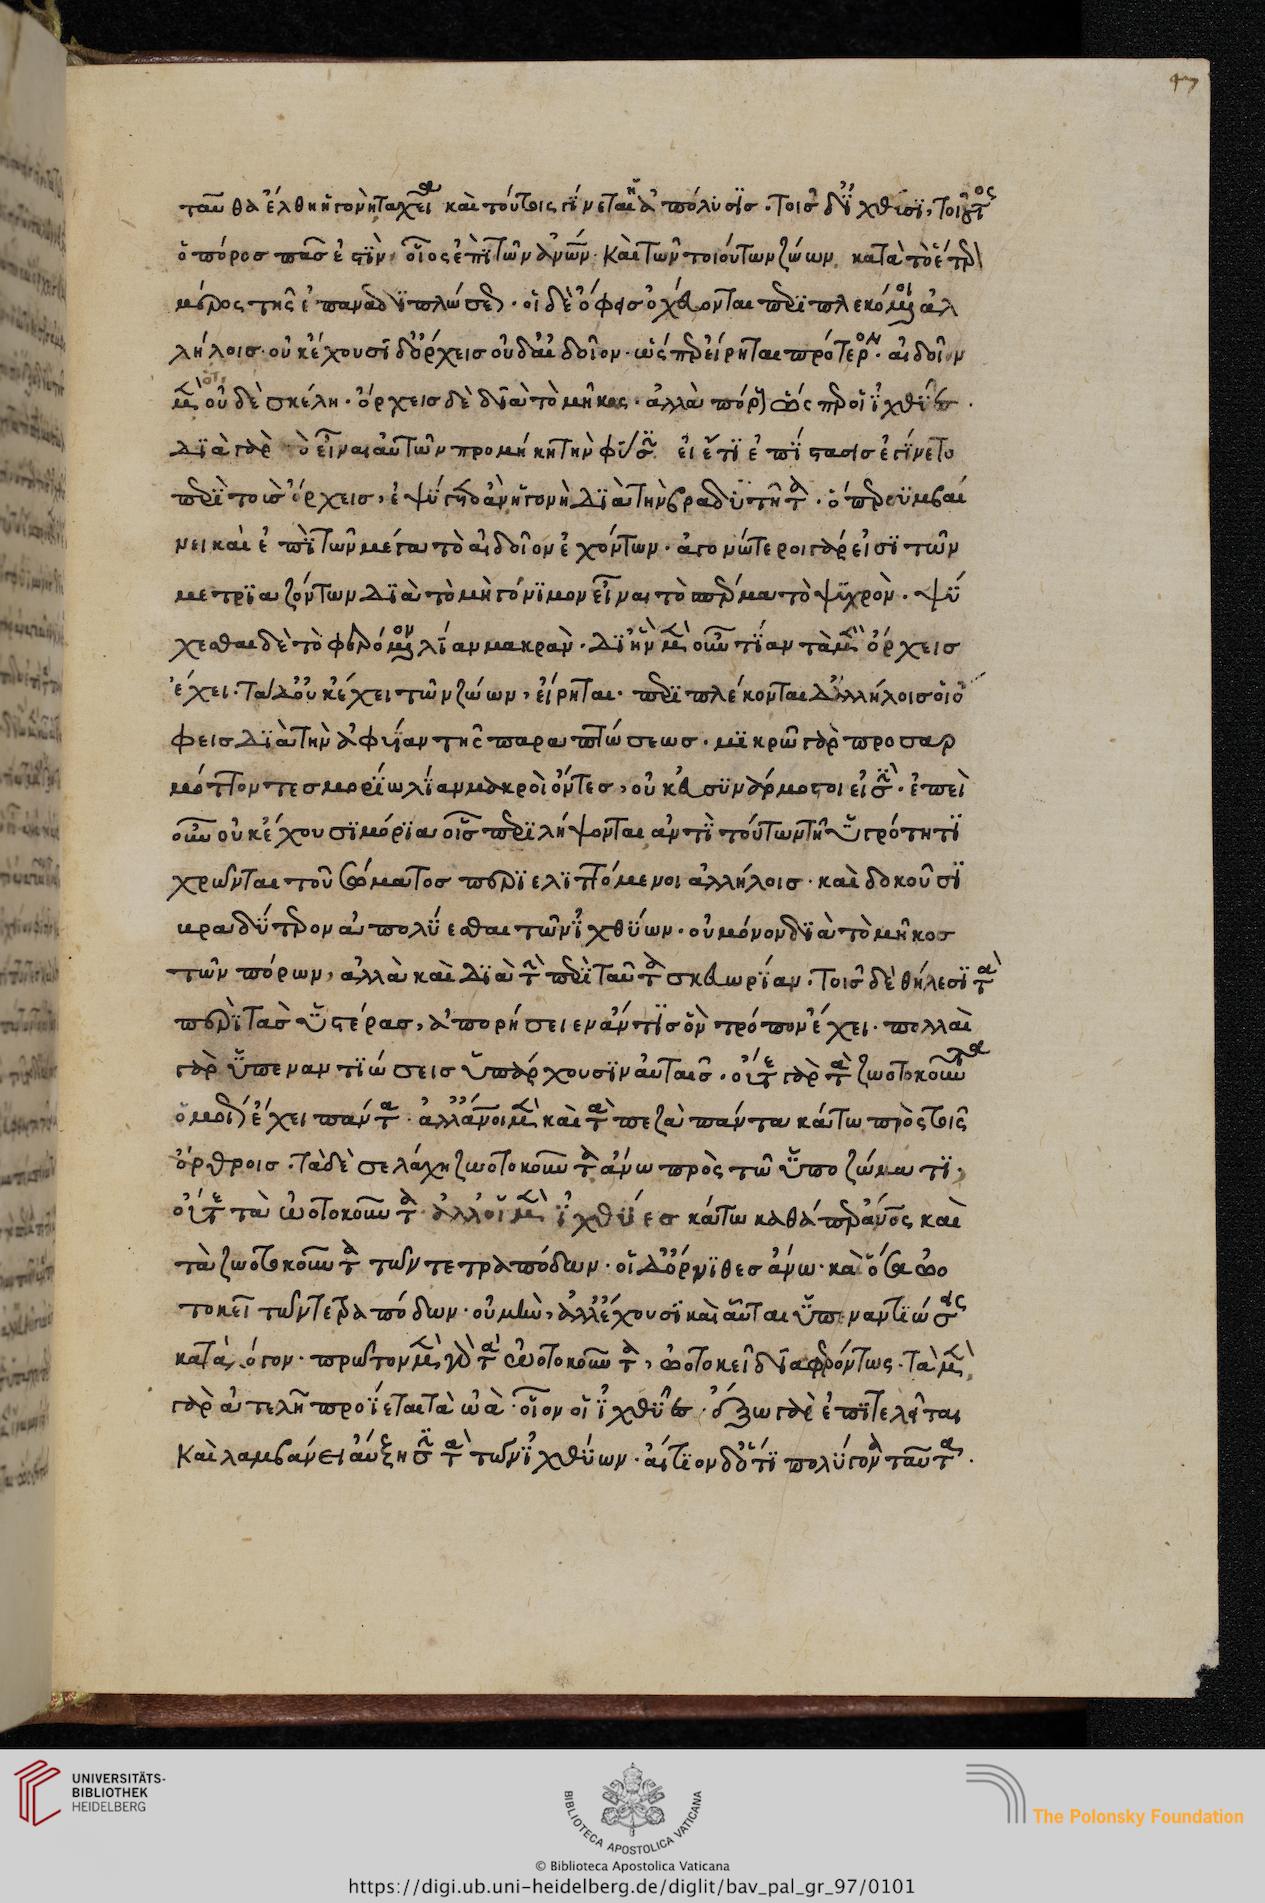 47
ταῦθα ἐλθη ἡ γονὴ ταχεῖα καὶ τούτοις γίνεται ἡ ἀπόλυσϊς. τοῖς δ' ἰχθύσϊ, τοιοῦτος
ὁ πόρος πᾶς ἐστὶν, οἷος ἐπὶ τῶν ἀνῶν. καὶ τῶν τοιούτων ζώων κατὰ τὸ ἕτερον
μέρος τῆς ἐπαναδϊπλώσεως. οἱ δὲ ὄφεις ὀχεύονται περϊπλεκόμενοι ἀλ
λήλοις. οὐκ ἔχουσϊ δ' ὄρχεις οὐδ' αἰδοῖον. ὥσπερ εἴρηται πρότερον. αἰδοῖον
μὲν ὅτι οὐδὲ σκέλη. ὄρχεις δὲ δϊὰ τὸ μῆκος. ἀλλὰ πόρους ὥσπερ οἱ ἰχθῦς.
δϊὰ γὰρ τὸ εἶναι αὐτῶν προμήκη τὴν φύσιν. εἰ ἔτϊ ἐπίστασις ἐγίνετο
περὶ τοὺς ὄρχεις, ἐψύχετο ἂν ἡ γονὴ δϊὰ τὴν βραδυτῆτα. ὅπερ συμβαί
νει καὶ ἐπὶ τῶν μέγα τὸ αἰδοῖον ἐχόντων. ἀγονώτεροι γάρ εἰσϊ τῶν
μετρϊαζόντων δϊὰ τὸ μὴ γόνϊμον εἶναι τὸ σπέρμα τὸ ψϋχρὸν. ψύ
χεσθαι δὲ τὸ φερόμενον λίαν μακρὰν. δϊ' ἣν μὲν οὖν αἰτίαν τὰ μὲν ὄρχεις
ἔχει. τὰ δ' οὐκ ἔχει τῶν ζώων, εἴρηται. περϊπλέκονται δ' ἀλλήλοις οἱ ὄ
φεις δϊὰ τὴν ἀφυΐαν τῆς παραπτώσεως. μϊκρῷ γὰρ προσαρ
μόττοντες μορίῳ λίαν μακροὶ ὄντες, οὐκ εὐσϋνάρμοστοι εἰσὶν. ἐπεὶ
οὖν οὐκ ἔχουσϊ μόρϊα οἷς περϊλήψονται ἀντὶ τούτων τῇ ὑγρότητϊ
χρῶνται τοῦ σώματος περϊελϊττόμενοι ἀλλήλοις. καὶ δοκοῦσϊ
βραδύτερον ἀπολύεσθαι τῶν ἰχθύων. οὐ μόνον δϊὰ τὸ μῆκος
τῶν πόρων, ἀλλὰ καὶ δϊὰ τὴν περὶ ταῦτα σκευωρίαν. τοῖς δὲ θήλεσϊ τὰ
περὶ τὰς ὑστέρας, ἀπορήσειεν ἄν τις ὃν τρόπον ἔχει. πολλαὶ
γὰρ ὑπεναντιώσεις ὑπάρχουσϊν αὐταῖς. οὔτε γὰρ τὰ ζωοτοκοῦντα
ὁμοίως ἔχει πάντα. ἀλλ' ἄνοι μὲν καὶ τὰ πεζὰ πάντα κάτω πρὸς τοῖς
ἄρθροις. τὰ δὲ σελάχη ζωοτοκοῦντα ἄνω πρὸς τῷ ὑποζώματϊ,
οὔτε τὰ ὠοτοκοῦντα. ἀλλ' οἱ μὲν ἰχθύες κάτω καθάπερ ἄνος καὶ
τὰ ζωοτοκοῦντα τῶν τετραπόδων. οἱ δ' ὄρνϊθες ἄνω. καὶ ὅσα ὠο
τοκεῖ τῶν τετραπόδων. οὐ μὴν, ἀλλ' ἔχουσϊ καὶ αὗται ὑπεναντιώσεις
κατὰ λόγον. πρῶτον μὲν γὰρ τὰ ὠοτοκοῦντα, ὠοτοκεῖ διαφερόντως. τὰ μὲν
γὰρ ἀτελῆ προΐεται τὰ ὠὰ. οἷον οἱ ἰχθῦς. ἔξω γὰρ ἐπιτελεῖται
καὶ λαμβάνει αὔξησιν τὰ τῶν ἰχθύων. αἴτϊον δ' ὅτϊ πολύγονα ταῦτα.
UNIVERSITÄTS-
BIBLIOTHEK
HEIDELBERG
BIBLIOTECA APOSTOLICA VATICANA
The Polonsky Foundation
© Biblioteca Apostolica Vaticana
https://digi.ub.uni-heidelberg.de/diglit/bav_pal_gr_97/0101